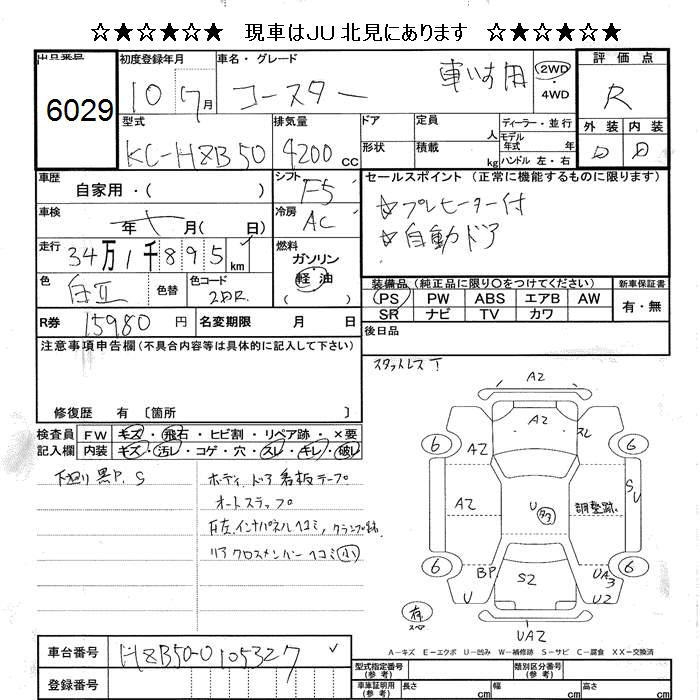 ☆★☆★☆★ 現車はJU北見にあります ☆★☆★☆★
出品番号
6029
初度登録年月
10 7月
車名・グレード
コースター 車いす用
2WD
・
4WD
評価点
R
外装 内装
D D
型式
KC-HZB50
排気量
4200cc
ドア
形状
定員 人
積載 kg
ディーラー・並行
モデル
年式 年
ハンドル 左・右
車歴
自家用・( )
シフト
F5
セールスポイント(正常に機能するものに限ります)
☆プレヒーター付
☆自動ドア
車検
年 月( 日)
冷房
AC
走行
34万1千895km
燃料
ガソリン
軽油
( )
色
白II
色替
色コード
2DR.
装備品(純正品に限り○をつけてください)
PS PW ABS エアB AW
SR ナビ TV カワ
新車保証書
有・無
R券 15980円
名変期限 月 日
後日品
スタットレス T
注意事項申告欄(不具合内容等は具体的に記入して下さい)
修復歴 有〔箇所 〕
検査員
記入欄
FW キズ・飛石・ヒビ割・リペア跡・×要
内装 キズ・汚レ・コゲ・穴・スレ・キレ・破レ
下廻り黒P. S
ボーディ、ドア看板テープ
オートステップ
左右インナパネルヘコミ,クランプ跡.
リアクロスメンバーヘコミ小
A2
A2
スレ
6
6
A2
A2
U
タ3
調整跡.
S
U
6
6
BP.
S2
UA3
U
U2
有
スペア
UA2
A-キズ E-エクボ U-凹み W-補修跡 S-サビ C-腐食 XX-交換済
車台番号
HZB50-0105327
登録番号
型式指定番号
(参考)
類別区分番号
(参考)
車庫証明用
(参考)
長さ cm
幅 cm
高さ cm